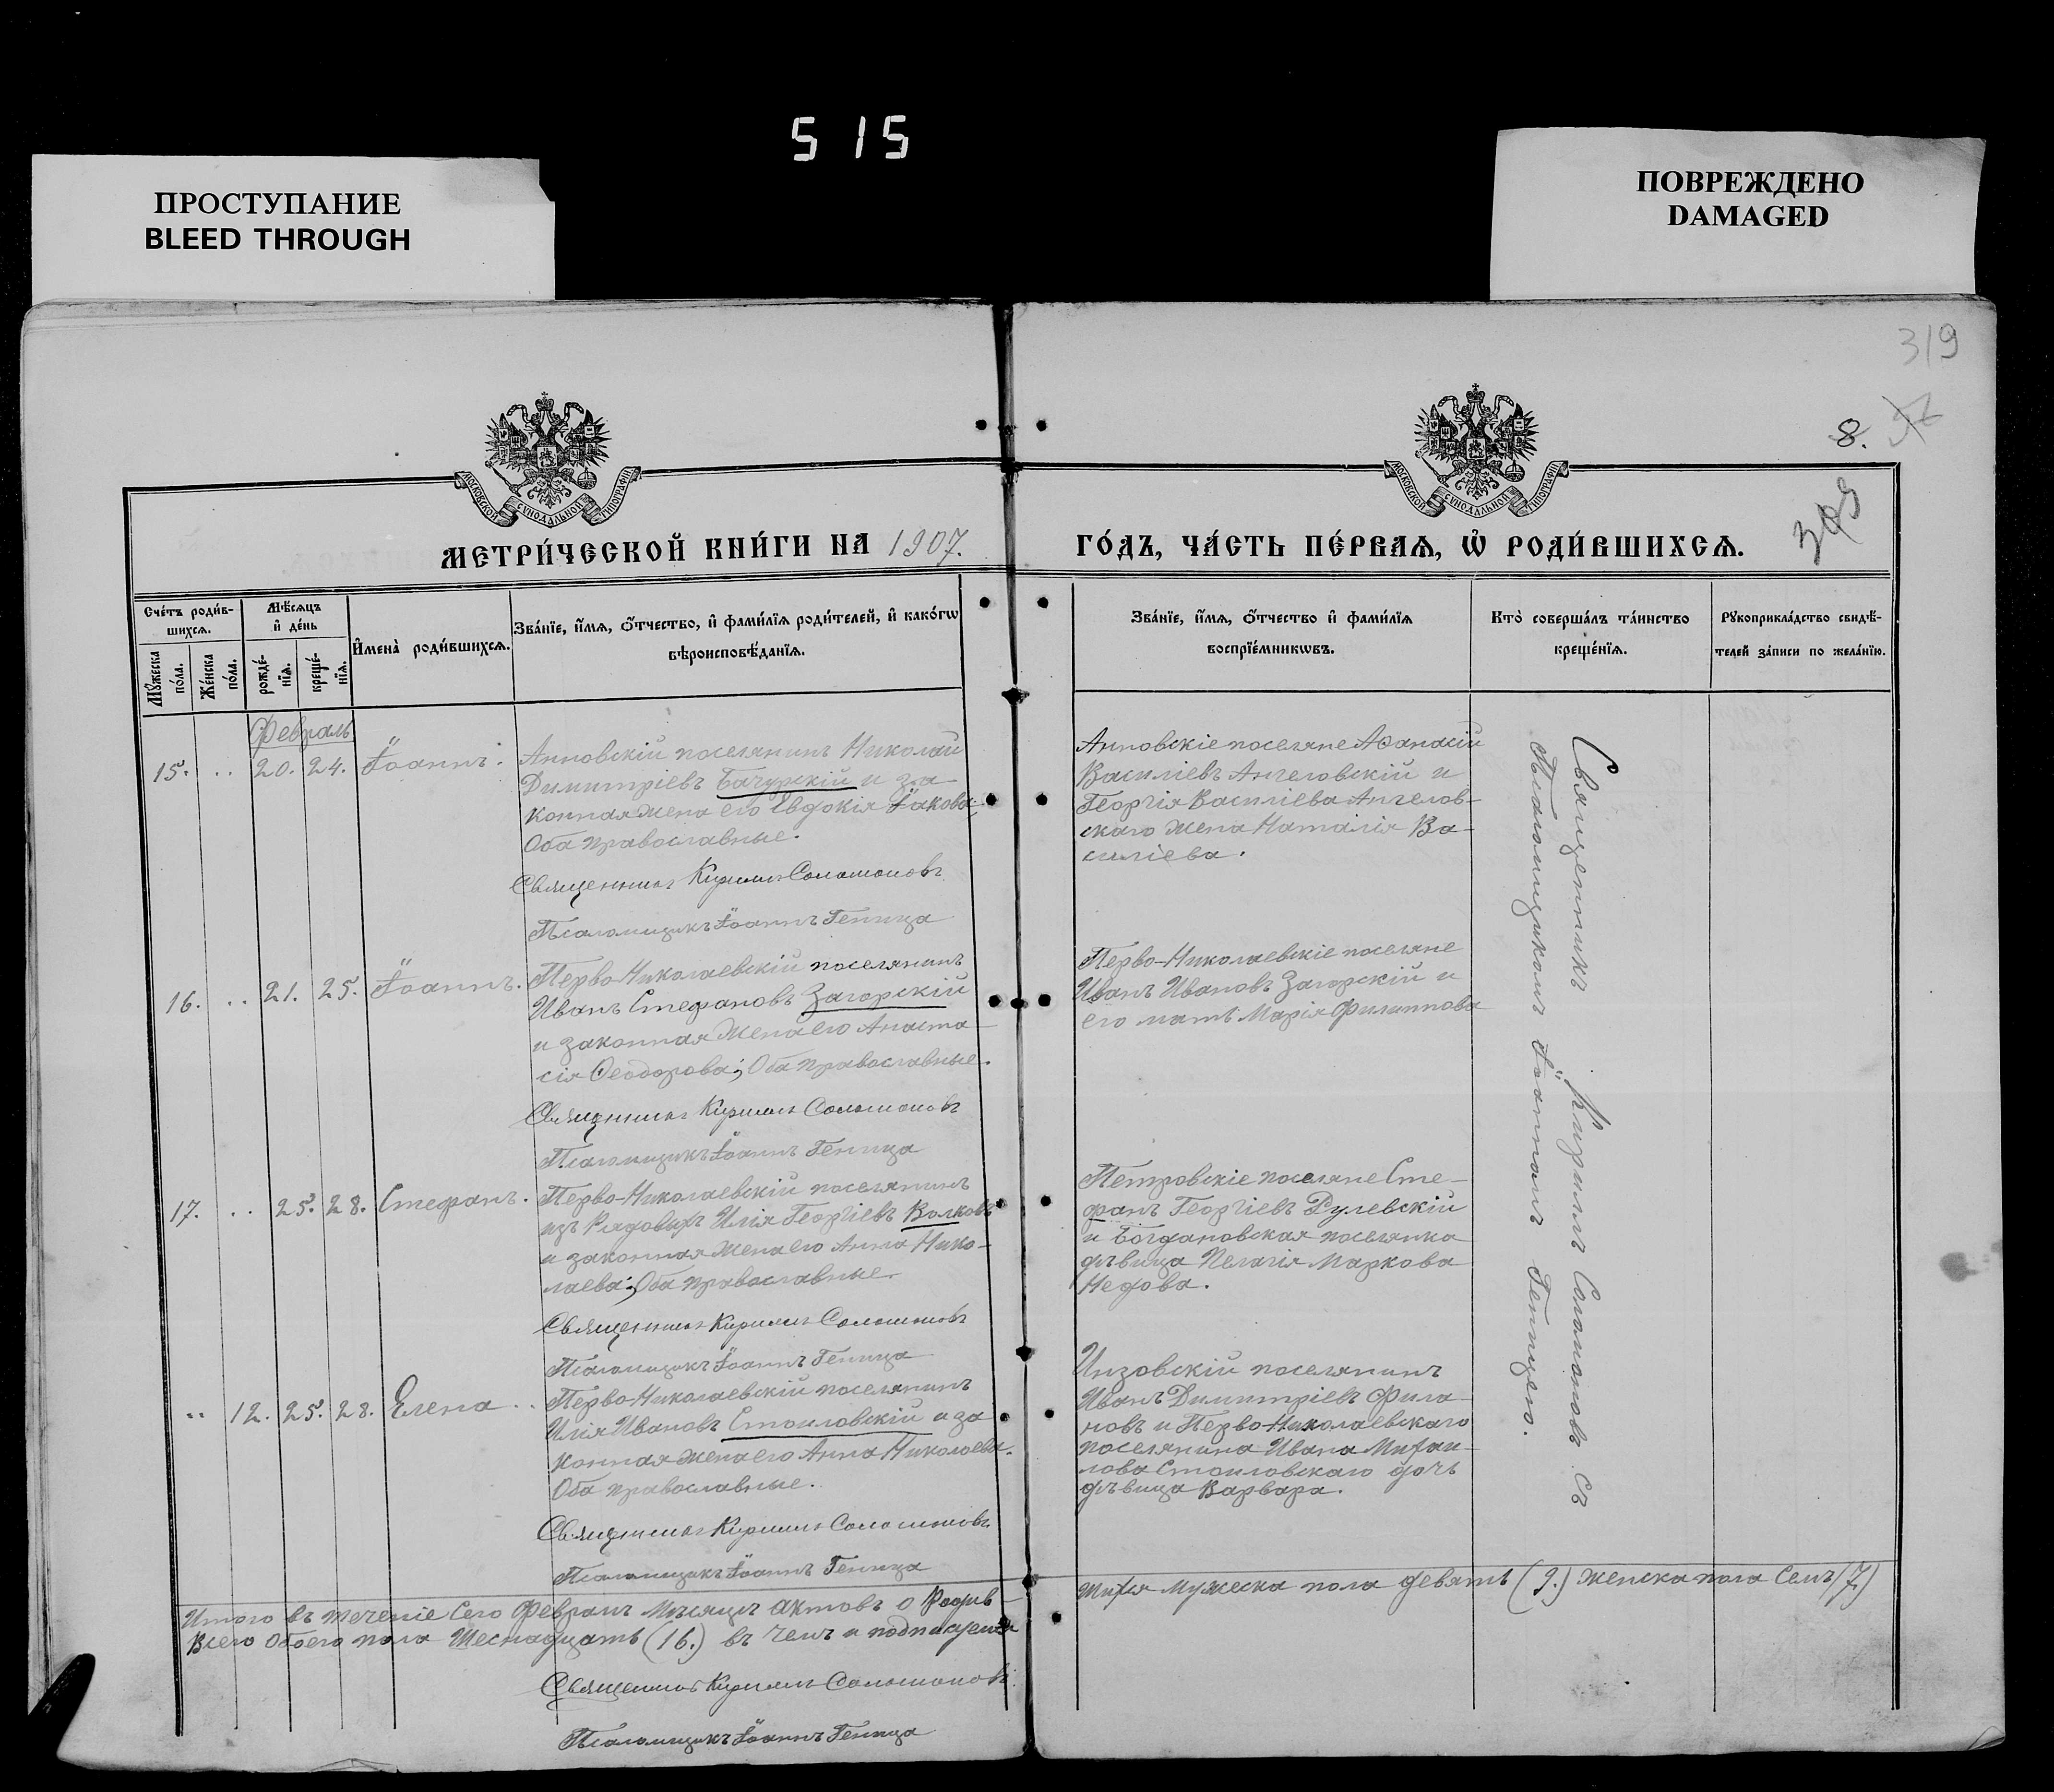 515
ПРОСТУПАНИЕ
BLEED THROUGH
ПОВРЕЖДЕНО
DAMAGED
319
8.
МОСКОВСКОЙ СУНОДАЛЬНОЙ ТИПОГРАФІИ
МОСКОВСКОЙ СУНОДАЛЬНОЙ ТИПОГРАФІИ
МЕТРИ́ЧЕСКОЙ КНИ́ГИ НА 1907.
ГО́ДЪ, ЧА́СТЬ ПЕ́РВАѦ, Ѡ РОДИ́ВШИХСѦ.
Сче́тъ роди́в-
шихсѧ.
Мꙋ́жеска
по́ла.
Же́нска
по́ла.
Мѣ́сѧцъ
и҆ де́нь
рожде́-
нїѧ.
креще́-
нїѧ.
И҆мена̀ роди́вшихсѧ.
Зва́нїе, и҆́мѧ, ѻ҆́тчество, и҆ фами́лїѧ роди́телей, и҆ како́гѡ
вѣроисповѣ́данїѧ.
Зва́нїе, и҆́мѧ, ѻ҆́тчество и҆ фами́лїѧ
воспрїе́мникѡвъ.
Кто̀ соверша́лъ та́инство
креще́нїѧ.
Рꙋкоприкла́дство свидѣ́-
телей за́писи по жела́нїю.
Февраль
15. .. 20. 24. Іоаннъ.
Анновскій поселянинъ Николай
Димитріевъ Бачурскій и за
конная жена его Евдокія Іакова;
Оба православные.
Священникъ Кириллъ Соломоновъ
Псаломщикъ Іоаннъ Геница
Анновскіе поселяне Аѳанасій
Василіевъ Ангеловскій и
Георгія Василіева Ангелов-
скаго жена Наталія Ва-
силіева.
16. .. 21. 25. Іоаннъ.
Перво-Николаевскій поселянинъ
Иванъ Стефановъ Загорскій
и законная жена его Анаста-
сія Ѳеодорова; Оба православные.
Священникъ Кириллъ Соломоновъ
Псаломщикъ Іоаннъ Геница
Перво-Николаевскіе поселяне
Иванъ Ивановъ Загорскій и
его мать Марія Филиппова
17. .. 25. 28. Стефанъ.
Перво-Николаевскій поселянинъ
изъ рядовыхъ Илія Георгіевъ Волковъ
и законная жена его Анна Нико-
лаева; Оба православные.
Священникъ Кириллъ Соломоновъ
Псаломщикъ Іоаннъ Геница
Петровскіе поселяне Сте-
фанъ Георгіевъ Рулевскій
и Богдановская поселянка
дѣвица Пелагія Маркова
Недова.
.. 12. 25. 28. Елена ..
Перво-Николаевскій поселянинъ
Илія Ивановъ Стоиловскій и за
конная жена его Анна Николаева.
Оба православные.
Священникъ Кириллъ Соломоновъ
Псаломщикъ Іоаннъ Геница
Инзовскій поселянинъ
Иванъ Димитріевъ Фила-
новъ и Перво-Николаевскаго
поселянина Ивана Михаи-
лова Стоиловскаго дочь
дѣвица Варвара.
Священникъ Кириллъ Соломоновъ съ
Псаломщикомъ Іоанномъ Геницею.
Итого въ теченіе сего Февраля мѣсяца актовъ о Родив-
шихся мужеска пола девять (9.) женска пола семь (7.)
Всего обоего пола Шестнадцать (16.) въ чемъ и подписуемся
Священникъ Кириллъ Соломоновъ
Псаломщикъ Іоаннъ Геница